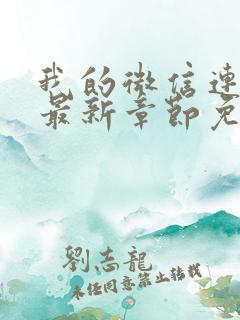 我的微信連
最新章節免
劉志龍
未经同意禁止转载